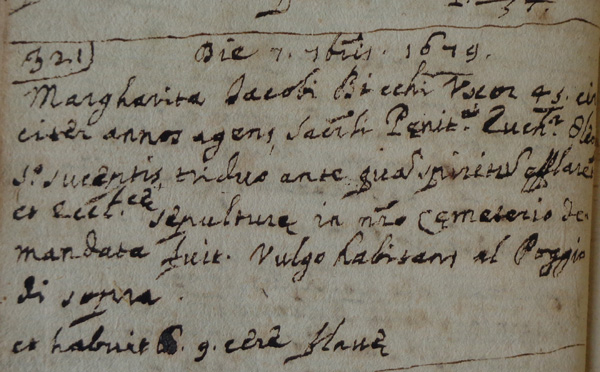 321
Die 7. 7bris. 1679.
Margharita Jacobi Bicchi Vxor 45. cir
citer annos agens, Sacrili Penit.ae Euch.ae Oleo
S.o sucentis, triduo ante quã spiritũ efflaret
et Eccl.ce sepulturę in nro Cęmeterio de.
mandata fuit. Vulgo habitans al Poggio
di sopra.
et habuit 9. cerę flauę